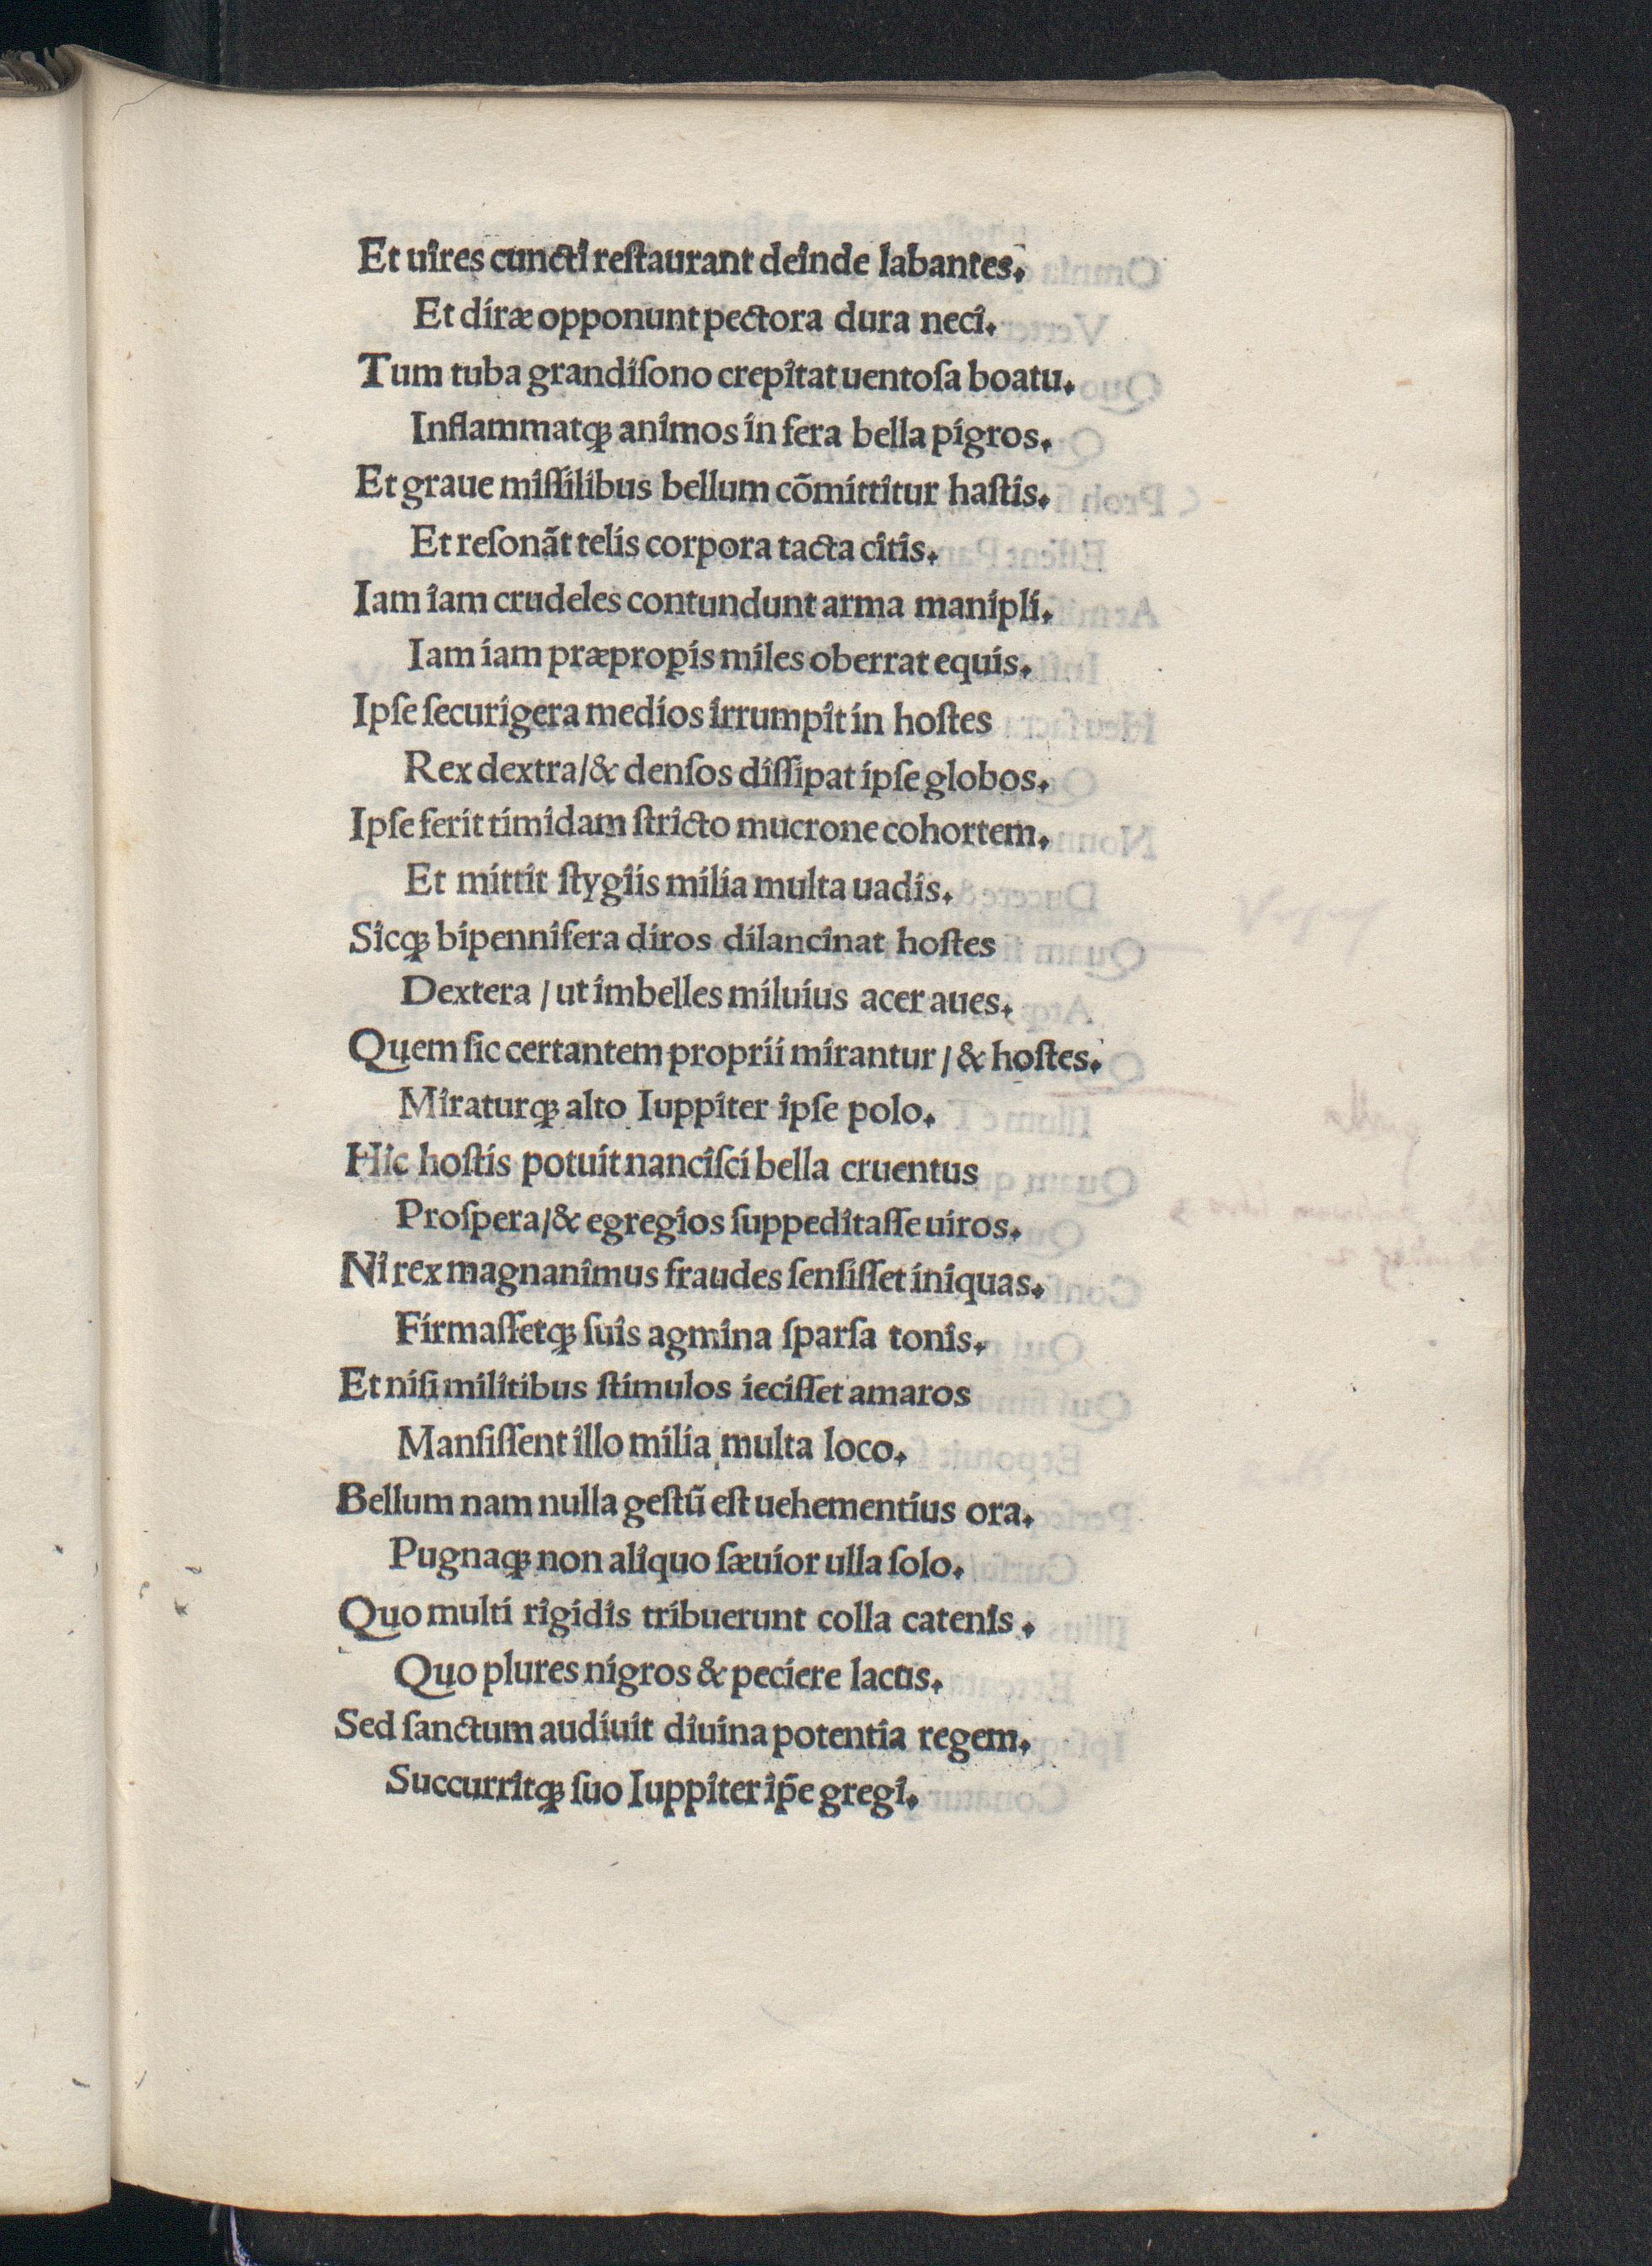 Et uires cuncti reſtaurant deinde labantes.
Et diræ opponunt pectora dura neci.
Tum tuba grandiſono crepitat uentoſa boatu.
Inflammatqꝫ animos in fera bella pigros.
Et graue miſſilibus bellum cõmittitur haſtis.
Et reſonãt telis corpora tacta citis.
Iam iam crudeles contundunt arma manipli.
Iam iam præpropis miles oberrat equis.
Ipſe ſecurigera medios irrumpit in hoſtes
Rex dextra/& denſos diſſipat ipſe globos.
Ipſe ferit timidam ſtricto mucrone cohortem.
Et mittit ſtygiis milia multa uadis.
Sicqꝫ bipennifera diros dilancinat hoſtes
Dextera / ut imbelles miluius acer aues.
Quem ſic certantem proprii mirantur / & hoſtes.
Miraturqꝫ alto Iuppiter ipſe polo.
Hic hoſtis potuit nanciſci bella cruentus
Proſpera/& egregios ſuppeditaſſe uiros.
Ni rex magnanimus fraudes ſenſiſſet iniquas.
Firmaſſetqꝫ ſuis agmina ſparſa tonis.
Et niſi militibus ſtimulos ieciſſet amaros
Manſiſſent illo milia multa loco.
Bellum nam nulla geſtũ eſt uehementius ora.
Pugnaqꝫ non aliquo ſæuior ulla ſolo.
Quo multi rigidis tribuerunt colla catenis .
Quo plures nigros & peciere lacus.
Sed ſanctum audiuit diuina potentia regem.
Succurritqꝫ ſuo Iuppiter ip̃e gregi.